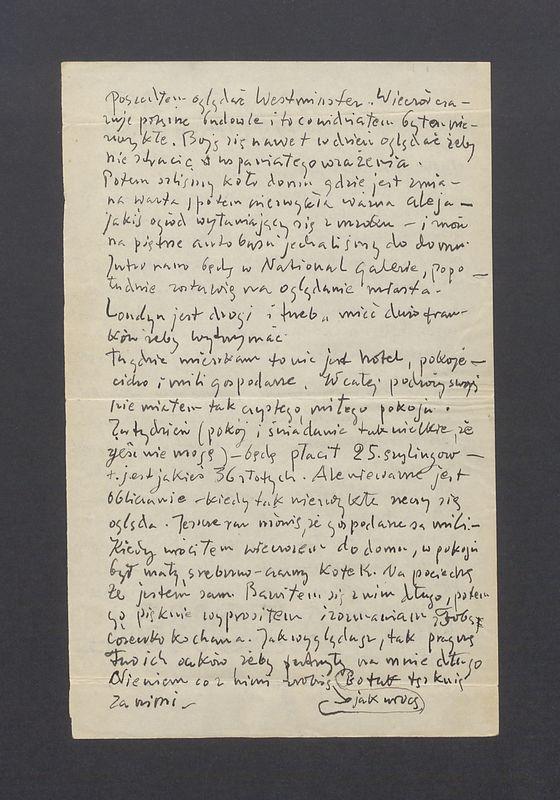 Poszedłem oglądać Westminster. Wieczór cza-
ruje potężne budowle i to co widziałem było nie-
zwykłe. Boję się nawet w dzień oglądać żeby
nie stracić wspaniałego wrażenia.
Potem szliśmy koło domu gdzie jest zmia-
na warta, potem niezwykła ważna aleja —
jakiś ogród wyłaniający się z mroku — i znów
na piętrze autobusu jechaliśmy do domu.
Jutro rano będę w National Galerie, popo—
łudnie zostawię na oglądanie miasta.
Londyn jest drogi i trzeba mieć dużo fran-
ków żeby wytrzymać.
Tu gdzie mieszkam to nie jest hotel, pokoje—
cicho i mili gospodarze. W całej podróży swojej
nie miałem tak czystego, miłego pokoju.
Za tydzień (pokój i śniadanie tak wielkie, że
zjeść nie mogę) — będę płacił 25 szylingów —
t. jest jakieś 36 złotych. Ale nieważne jest
obliczanie — kiedy tak niezwykłe rzeczy się
ogląda. Jeszcze raz mówię, że gospodarze są mili.—
Kiedy wróciłem wieczorem do domu, w pokoju
był mały, srebrno-czarny kotek. Na pociechę
że jestem sam. Bawiłem się z nim długo, potem
go pięknie wyprosiłem i rozmawiam z Tobą,
kochana. Jak wyglądasz, tak pragnę
Twoich oczków żeby patrzyły na mnie długo
Nie wiem co z nimi zrobię (Bo tak tęsknię
za nimi — jak wrócę)